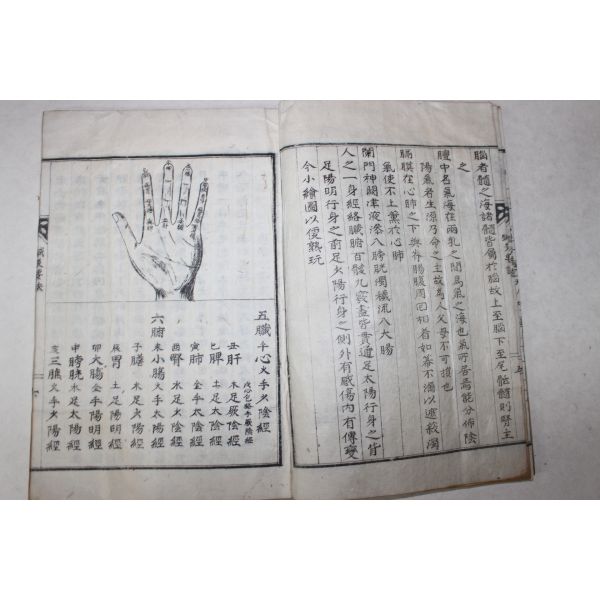 腦者髓之海諸髓皆屬於腦故上至腦下至尾骶髓則腎主
之
膻中名氣海在兩乳之間爲氣之海也氣所居焉能分佈陰
陽氣者生源乃命之主故爲人父母不可損也
膈膜在心肺之下與脊腸腹周回相着如幕不漏以遮蔽濁
氣使不上熏於心肺
闌門神闕津液滲入膀胱濁穢流入大腸
人之一身經絡臟膽百髓九竅皆貫通足太陽行身之背
足陽明行身之前足少陽行身之側外有感傷內有傳變
今小繪圖以便熟玩
五臟 手心火手少陰經
戌心包絡手厥陰經
丑肝 木足厥陰經
巳脾 土足太陰經
寅肺 金手太陰經
酉腎 水足少陰經
六腑 未小腸火手太陽經
子膽 木足少陽經
辰胃 土足陽明經
卯大腸金手陽明經
申膀胱水足太陽經
亥三焦火手少陽經